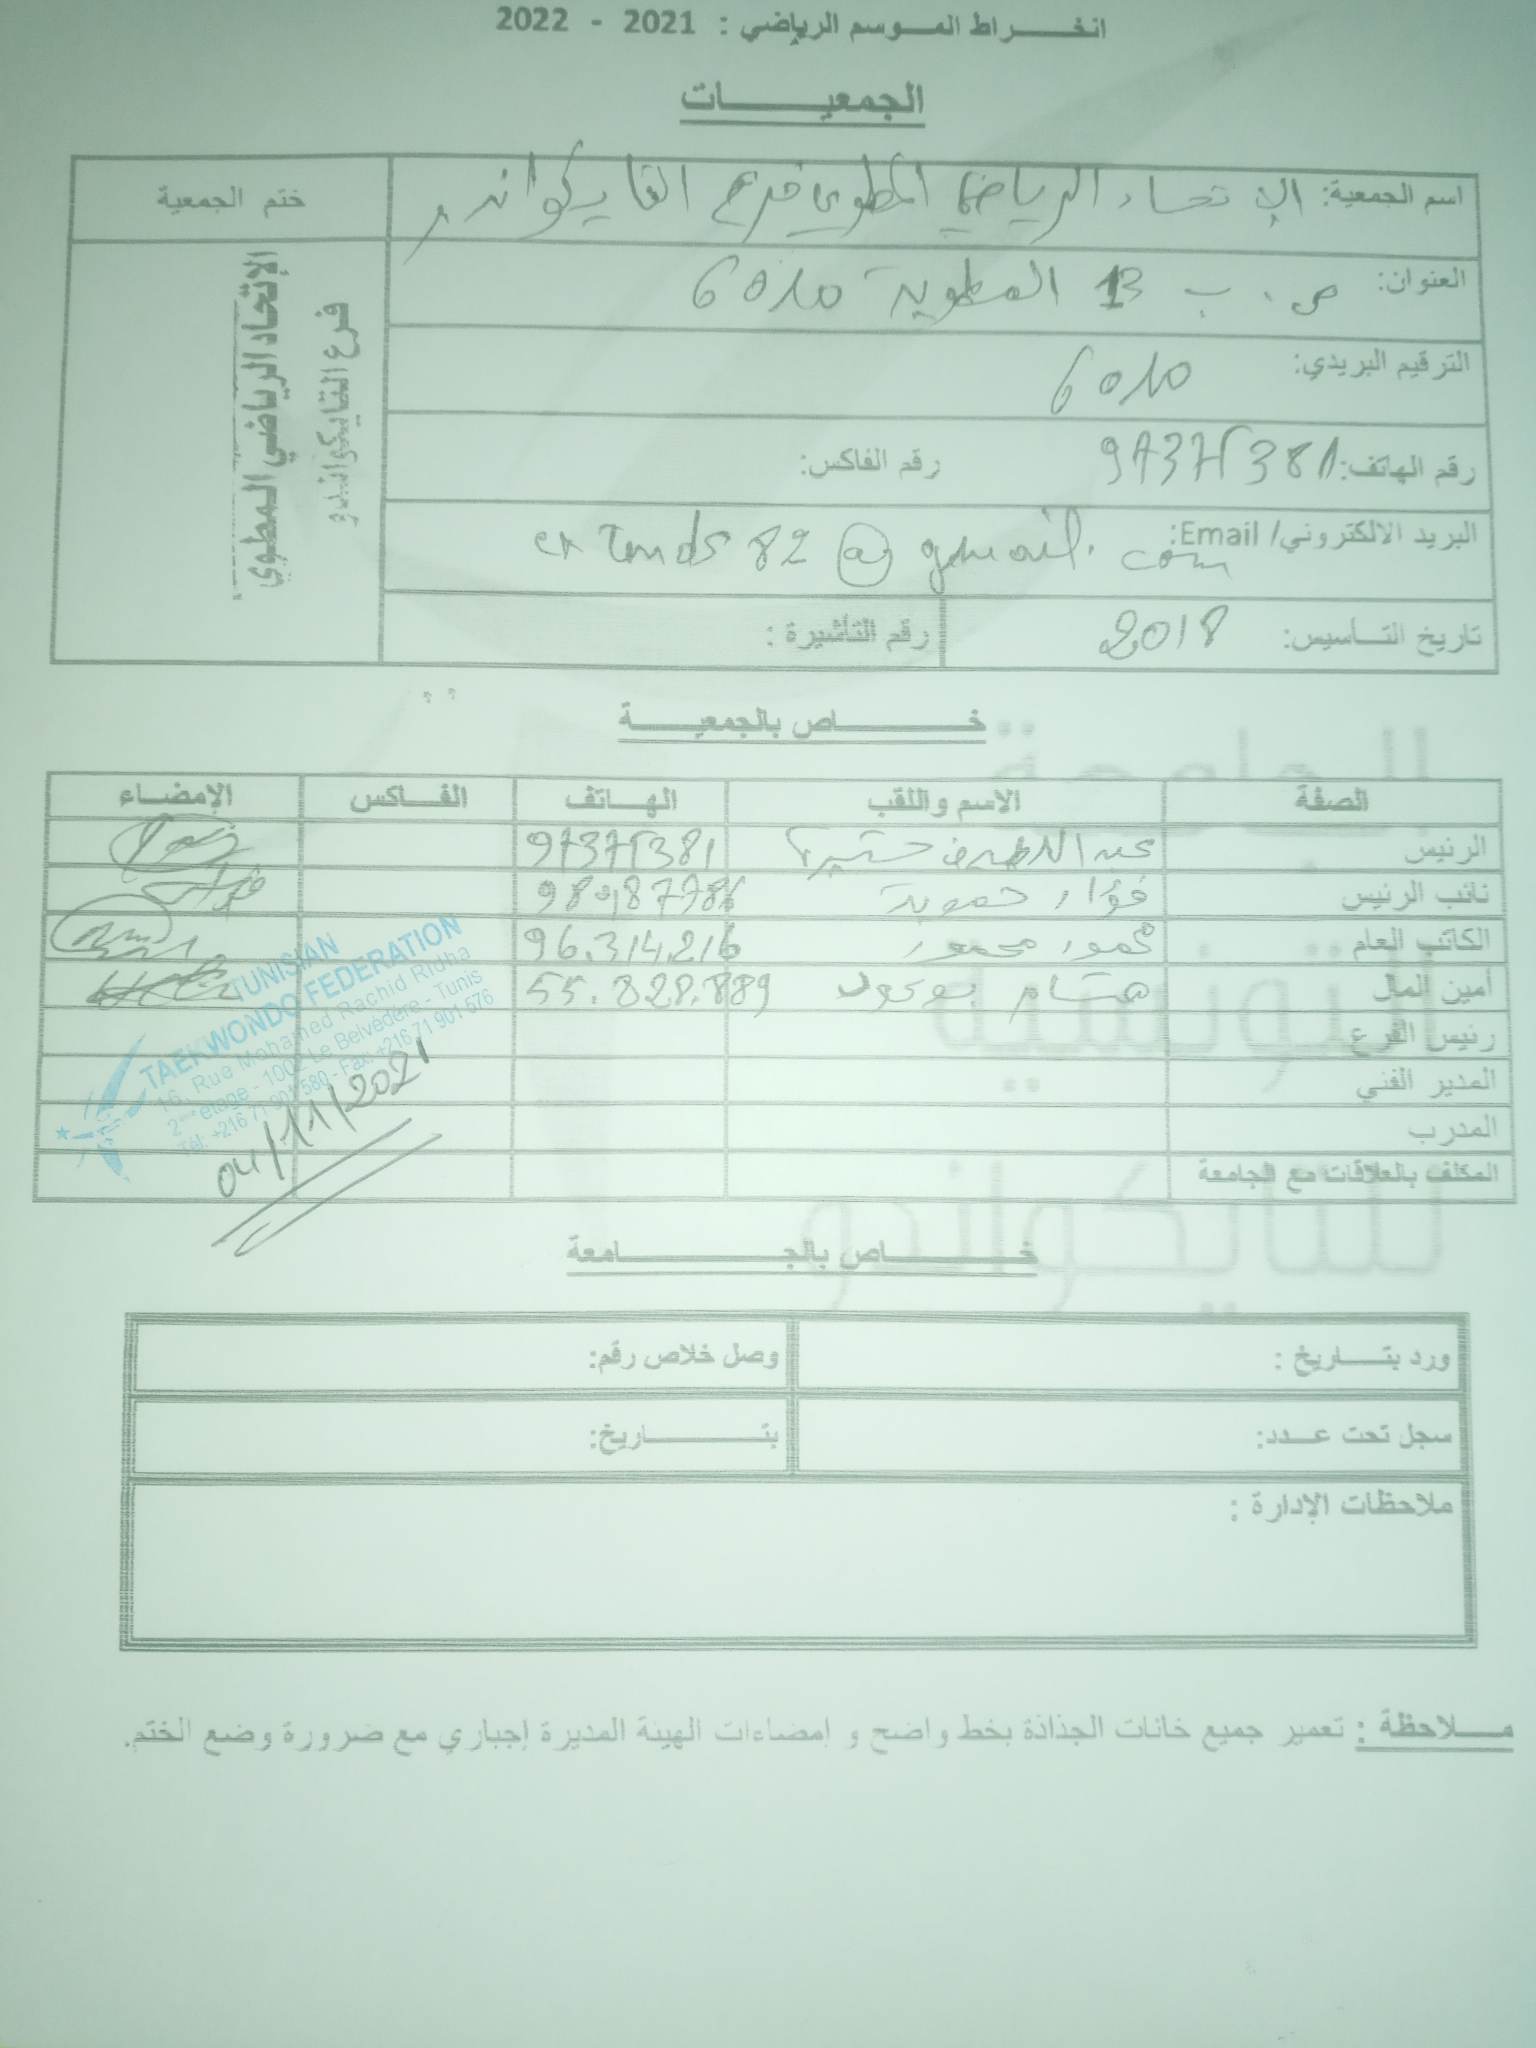 انخراط الموسم الرياضي : 2021 - 2022
الجمعيات
اسم الجمعية: الإتحاد الرياضي المطوي فرع التايكواندو
ختم الجمعية
العنوان: ص.ب 13 المطوية 6010
الإتحاد الرياضي المطوي
فرع التايكواندو
الترقيم البريدي: 6010
رقم الهاتف: 97375381 رقم الفاكس:
البريد الالكتروني/ Email: @gmail.com
تاريخ التأسيس: 2018 رقم التأشيرة :
خاص بالجمعية
الصفة الاسم واللقب الهاتف الفاكس الإمضاء
الرئيس عبد اللطيف 97375381
نائب الرئيس فؤاد حموية
الكاتب العام محمود 96.314.216
أمين المال هشام 55.828.889
رئيس الفرع
المدير الفني
المدرب
المكلف بالعلاقات مع الجامعة
TUNISIAN
TAEKWONDO FEDERATION
16, Rue Mohamed Rachid Ridha
2ème étage - 1002 Le Belvédère - Tunis
Tél: +216 71 901 580 - Fax: +216 71 901 576
04/11/2021
الجامعة
التونسية
للتايكواندو
خاص بالجامعة
ورد بتاريخ : وصل خلاص رقم:
سجل تحت عدد: بتاريخ:
ملاحظات الإدارة :
ملاحظة : تعمير جميع خانات الجذاذة بخط واضح و إمضاءات الهيئة المديرة إجباري مع ضرورة وضع الختم.